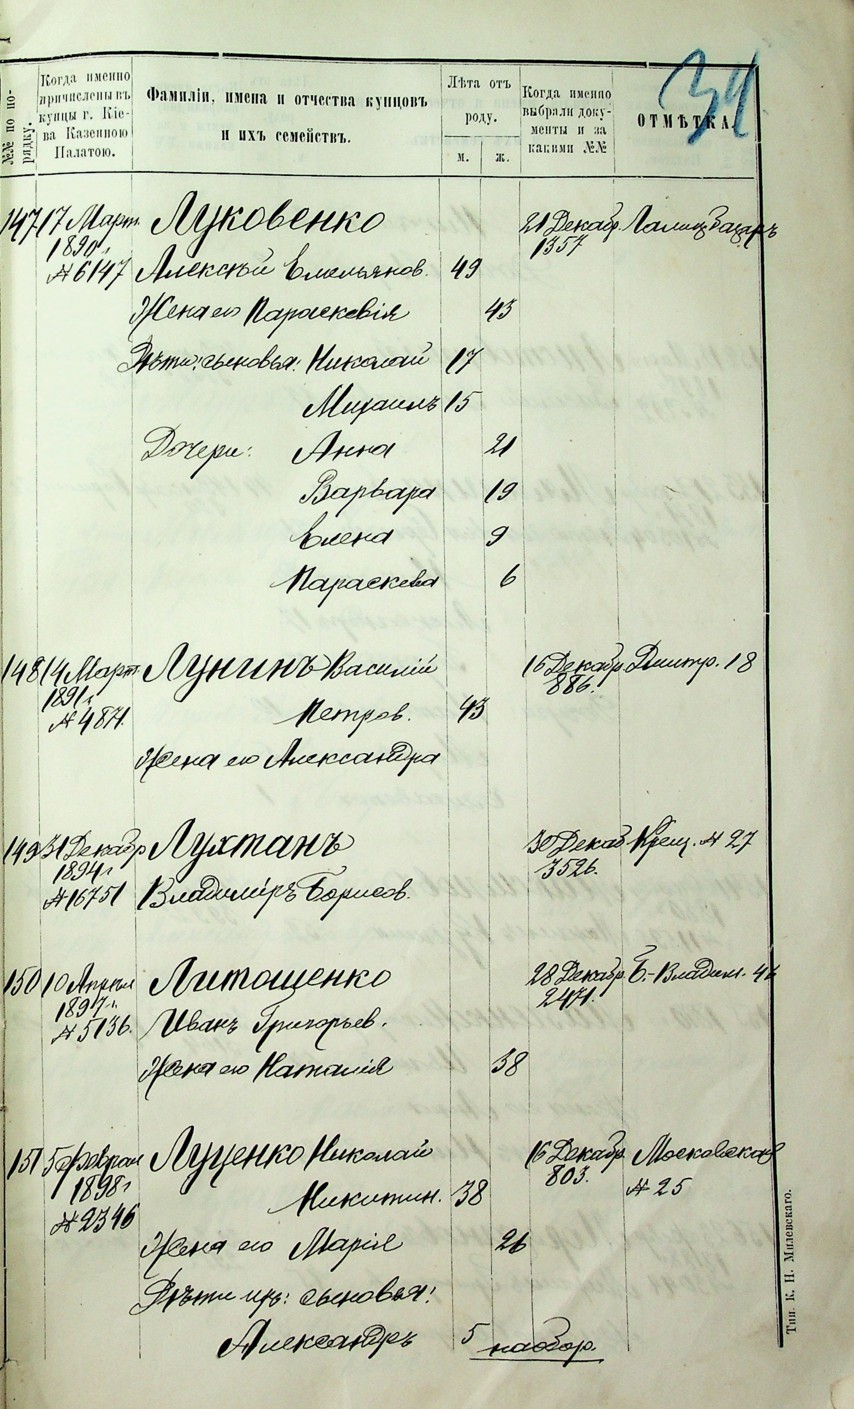 34
№№ по по-
рядку.
Когда именно
причислены въ
купцы г. Кіе-
ва Казенною
Палатою.
Фамиліи, имена и отчества купцовъ
и ихъ семействъ.
Лѣта отъ
роду.
м. ж.
Когда именно
выбрали доку-
менты и за
какими №№
ОТМѢТКА.
147 17 Март. Луковенко 21 Декабр.
1890 г. 1357
№ 6147 Алексѣй Емельянов. 49
Жена его Параскевія 43
Дѣти: сыновья: Николай 17
Михаилъ 15
Дочери: Анна 21
Варвара 19
Елена 9
Параскева 6
148 14 Март. Лунинъ Василій 16 Декабр. Дмитр. 18
1891 г. 886.
№ 4871. Петров. 43
Жена его Александра
149 31 Декабр Лухтанъ 30 Декаб. Крещ. № 27
1894 г. 3526.
№ 16751 Владиміръ Борисов.
150 10 Апрѣля Литошенко 28 Декабр. Б.-Владим.
1897 г. 2471.
№ 5136. Иванъ Григорьев.
Жена его Наталія 38
151 5 Феврал Луценко Николай 16 Декабр. Московская
1898 г. 803. № 25
№ 2346 Никитин. 38
Жена его Марія 26
Дѣти ихъ: сыновья:
Александръ 5 наобор.
Тип. К. Н. Милевскаго.